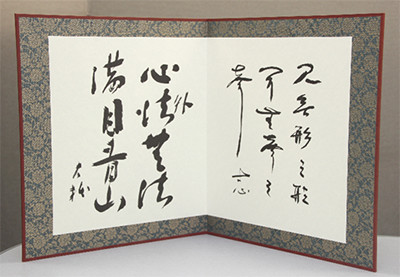 見無形之形
聞無声之
声
心外法無法
満目青山